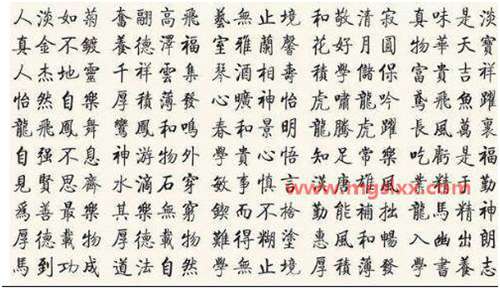 人淡如菊 奮翮高飛 藝無止境 和敬清寂 真味是淡
真金不鍍 養德澤福 室雅蘭馨 花好月圓 物華天寶
人杰地靈 千祥雲集 琴 壽 積學儲 富貴吉祥
怡然自樂 厚積薄發 心曠神怡 虎嘯龍吟 鳶飛魚躍
龍飛鳳舞 鸞鳳和鳴 春和景明 龍騰虎躍 長風萬里
自强不息 神游物外 學貴心悟 知足常樂 吃虧是福
見賢思齊 水滴石穿 敏事慎言 漢唐雄風 業精于勤
爲善最樂 其樂無窮 鍥而不捨 勤能補拙 龍馬精神
厚德載物 厚德載物 難得糊塗 惠風和暢 入幽出朗
馬到功成 道法自然 學無止境 厚積薄發 學書養志
www.mgslxx.com